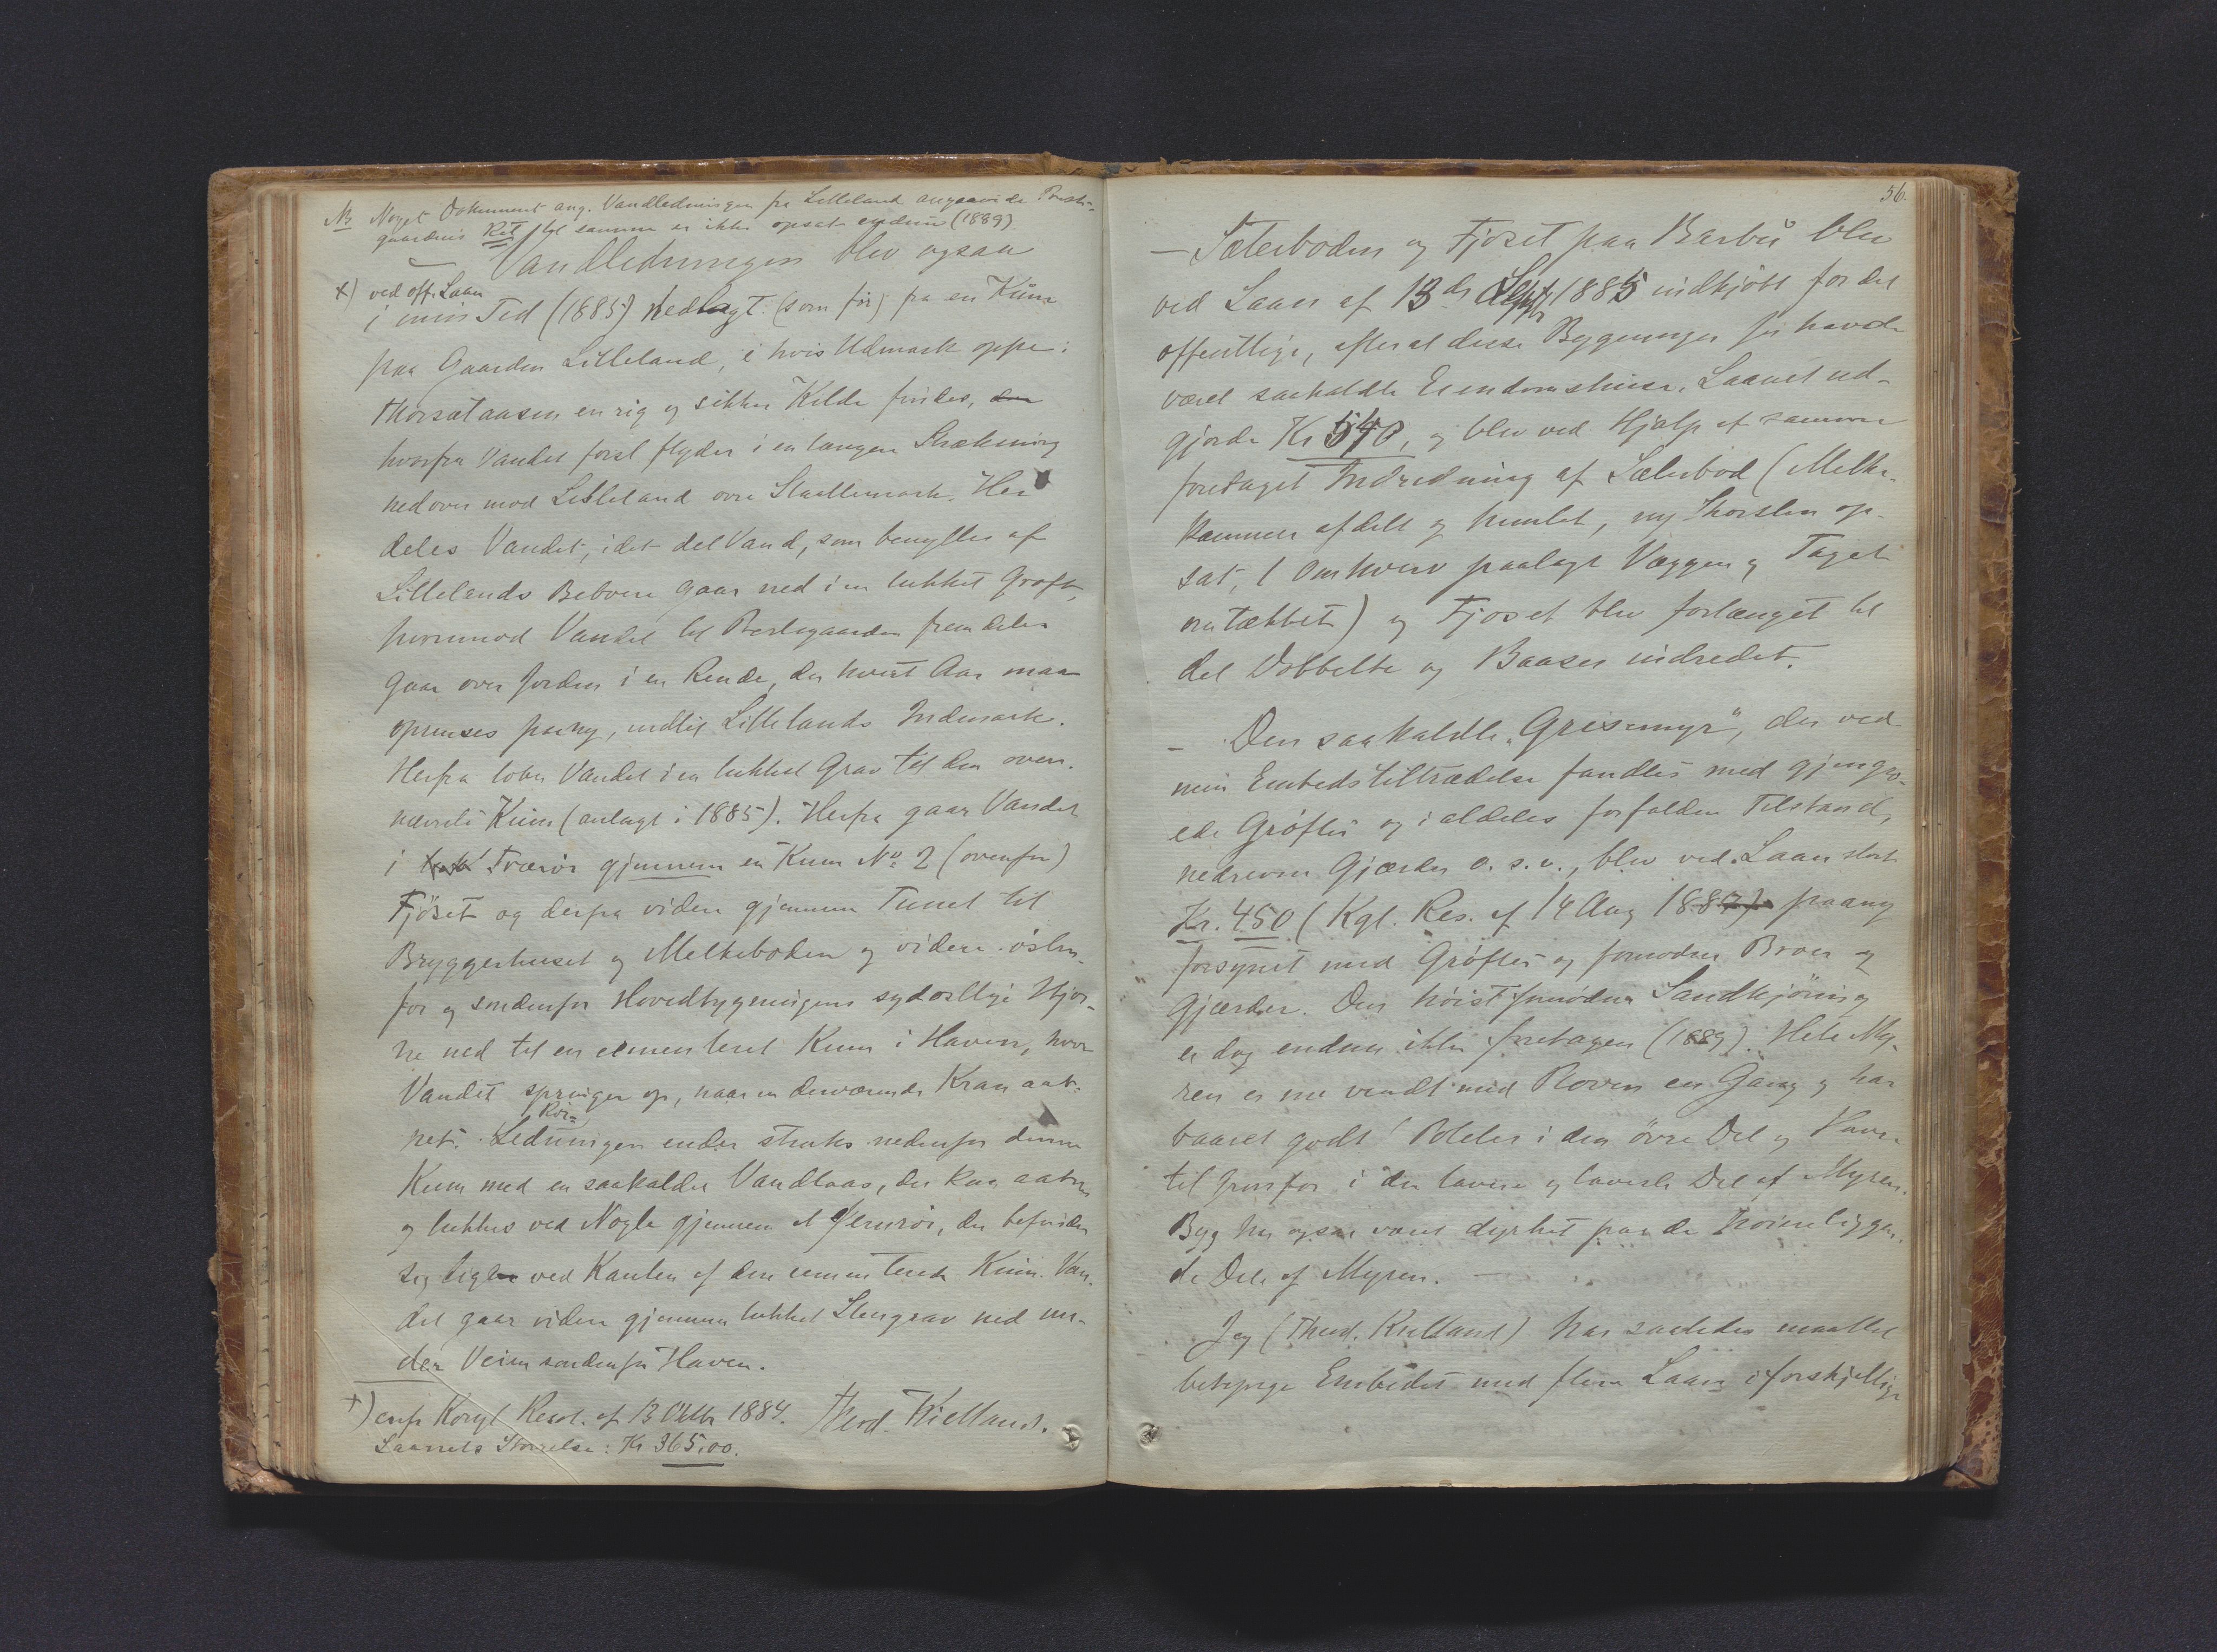 NB Noget Dokument ang. Vandledningen fra Lilleland angaaende Præste-
gaardens Ret til samme er ikke opsat endnu (1889)
— Vandledningen blev ogsaa
x) ved off. Laan
i min Tid (1885) nedlagt (som før) fra en Kum
paa Gaarden Lilleland, i hvis Udmark oppe i
Thorsætaasen en rig og sikker Kilde findes,
hvorfra Vandet først flyder i en længere Strækning
nedover mod Lilleland ovre Slaattemark. Her
deles Vandet, idet det Vand, som benyttes af
Lillelands Beboere gaar ned i en lukket Grøft,
hvorimod Vandet til Præstegaarden fremdeles
gaar over Jorden i en Rende, der hvert Aar maa
oprenses paany, indtil Lillelands Indmark.
Herfra løber Vandet i en lukket Grav til den oven-
nævnte Kum (anlagt i 1885). Herfra gaar Vandet
i Trærør gjennem en Kum No 2 (ovenfor)
Fjøset og derfra videre gjennem Tunet til
Bryggerhuset og Melkeboden og videre østen-
for og søndenfor Hovedbygningens sydøstlige Hjør-
ne ned til en cementeret Kum i Haven, hvor
Vandet springer op, naar en derværende Kran aab-
nes. Rør-
Ledningen ender straks nedenfor denne
Kum med en saakaldet Vandlaas, der kan aabnes
og lukkes ved Nøgle gjennem et Jernrør, der befinder
sig lige ved Kanten af den cementerede Kum. Van-
det gaar videre gjennem lukket Stengrav ned un-
der Veien søndenfor Haven.
x) cnfr Kongl Resol. af 13 Oktbr 1884. Thord. Kielland.
Laanets Størrelse: Kr 365,00.
56.
— Sæterboden og Fjøset paa Barbu blev
ved Laan af 13de Septbr 1885 indkjøbt for det
offentlige, efterat disse Bygninger før havde
været saakaldte Eiendomshuse. Laanet ud-
gjorde Kr 540, og blev ved Hjælp af samme
foretaget Indredning af Sæterbod (Melke-
kammer afdelt og himlet, ny Skorsten op-
sat, 1 Omhverv paalagt Væggen og Taget
omtækket) og Fjøset blev forlænget til
det Dobbelte og Baaser indredet.
— Den saakaldte "Grisemyr", der ved
min Embedstiltrædelse fandtes med gjengro-
ede Grøfter og i aldeles forfalden Tilstand,
nedrevne Gjærder o. s. v., blev ved Laan stort
Kr. 450 (Kgl. Res. af 14 Aug 1887) paany
forsynet med Grøfter og fornødne Broer og
Gjærder. Den høist fornødne Sandkjøring
er dog endnu ikke foretagen (1889). Hele My-
ren er nu vendt med Ploven en Gang og har
baaret godt! Poteter i den øvre Del og Havre
til Grønfor i den lavere og laveste Del af Myren.
Byg har ogsaa været dyrket paa de høiereliggen-
de Dele af Myren. —
Jeg (Thord. Kielland) har saaledes maattet
bebyrge Embedet med flere Laan i forskjellige